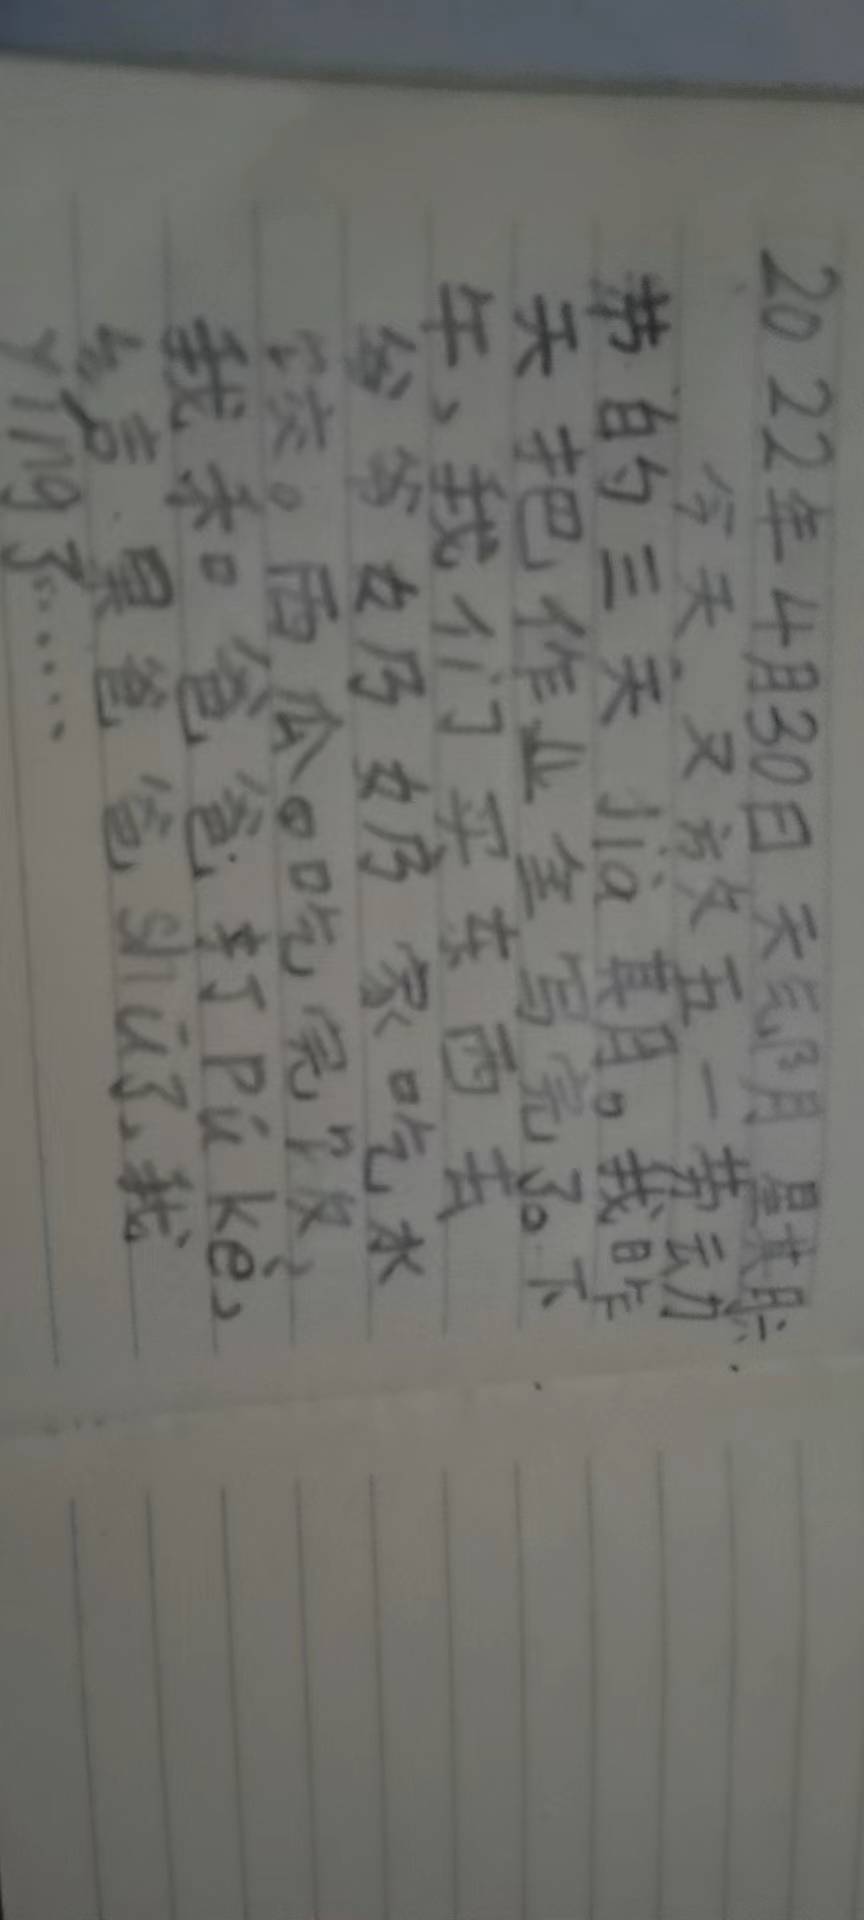 2022年4月30日 天气阴 星期
今天又放五一劳动
节的三天jià期。我昨
天把作业全写完了。下
午、我们买东西去
爷爷奶奶家吃水
饺。西瓜。吃完饭、
我和爸爸打pú kè、
结果爸爸shū了、我
yíng了……